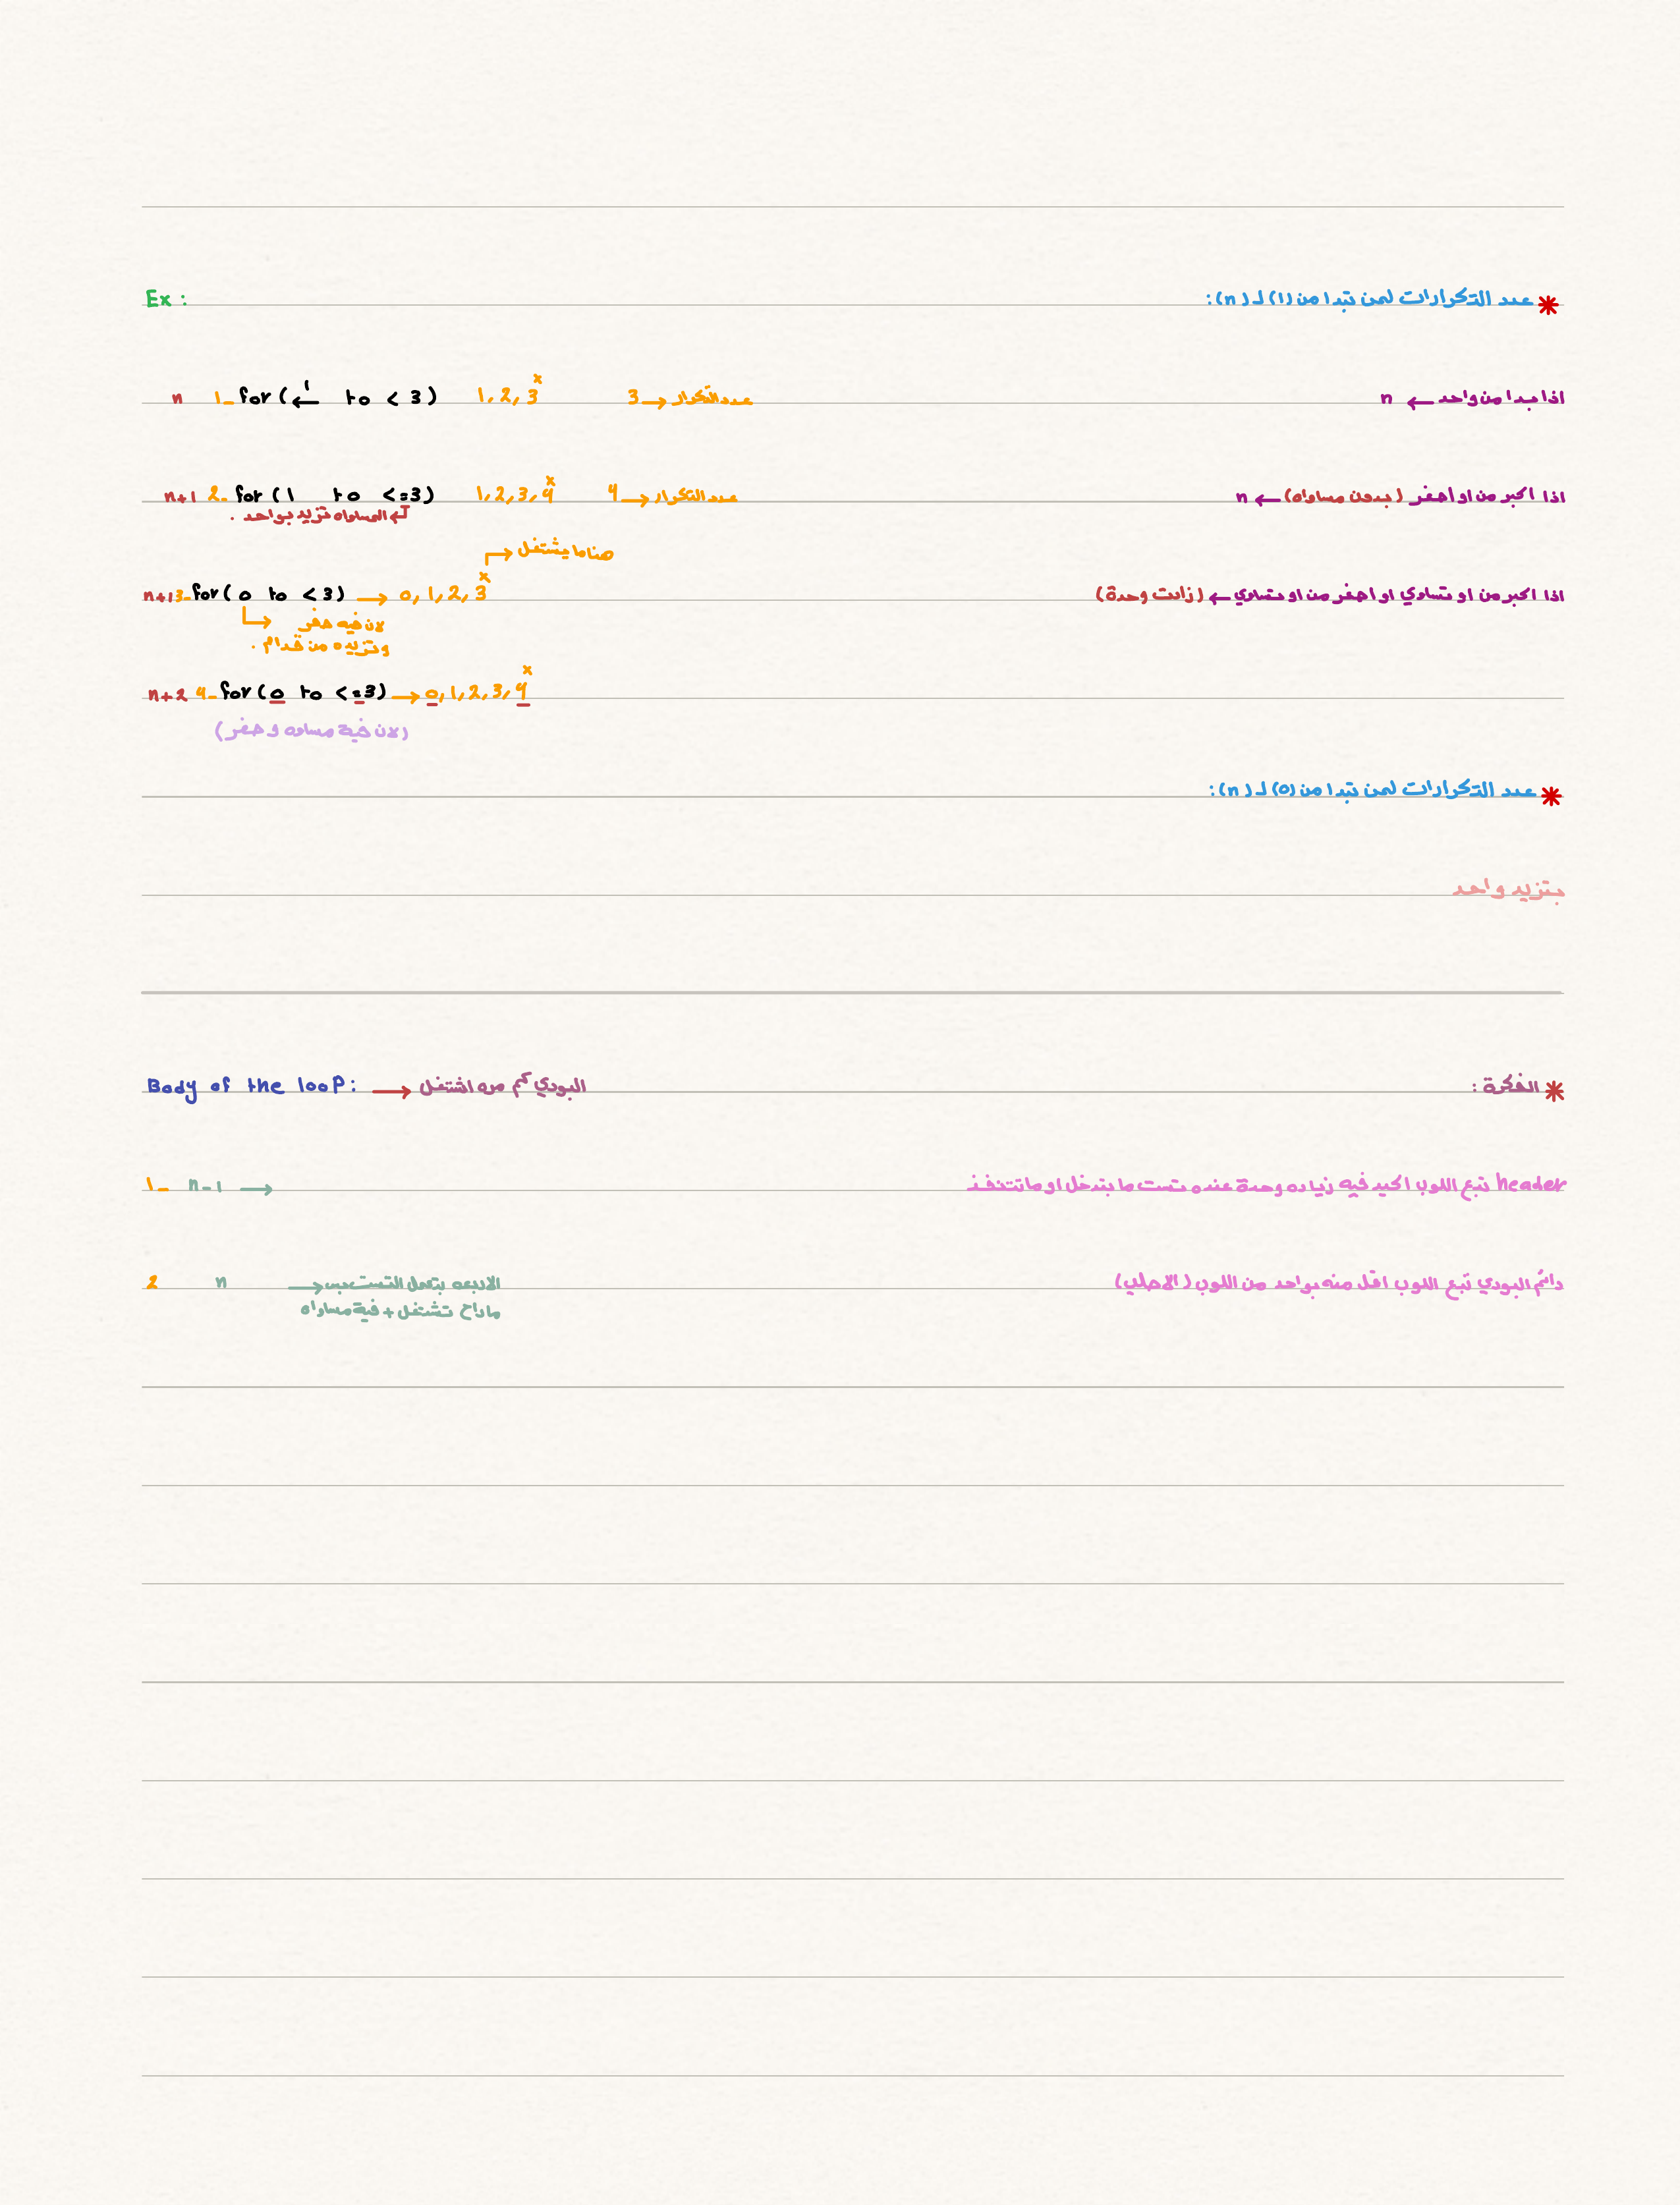 * عدد التكرارات لمن تبدا من (1) لـ (n):
Ex :
اذا بدا من واحد ← n
n 1_ for (1 ← to < 3) 1, 2, 3 x عدد التكرار → 3
اذا اكبر من او اصغر (بدون مساواه) ← n
n+1 2- for (1 to <=3) 1, 2, 3, 4 x عدد التكرار → 4
المساواه تزيد بواحد .
هنا ما يشتغل
اذا اكبر من او تساوي او اصغر من او تساوي ← (زادت وحدة)
n+1 3- for ( 0 to < 3) → 0, 1, 2, 3 x
لان فيه صفر
وتزيده من قدام .
n+2 4- for (0 to <=3) → 0, 1, 2, 3, 4 x
(لان فية مساوه و صفر)
* عدد التكرارات لمن تبدا من (0) لـ (n):
بتزيد واحد
* الفكرة :
Body of the loop: → البودي كم مره اشتغل
header تبع اللوب اكيد فيه زياده وحدة عنده تست ما بتدخل او ما تتنفذ
1_ n-1 →
دائم البودي تبع اللوب اقل منه بواحد من اللوب (الاصلي)
2 n الاربعه بتعمل التست بس →
ماراح تشتغل + فية مساواه